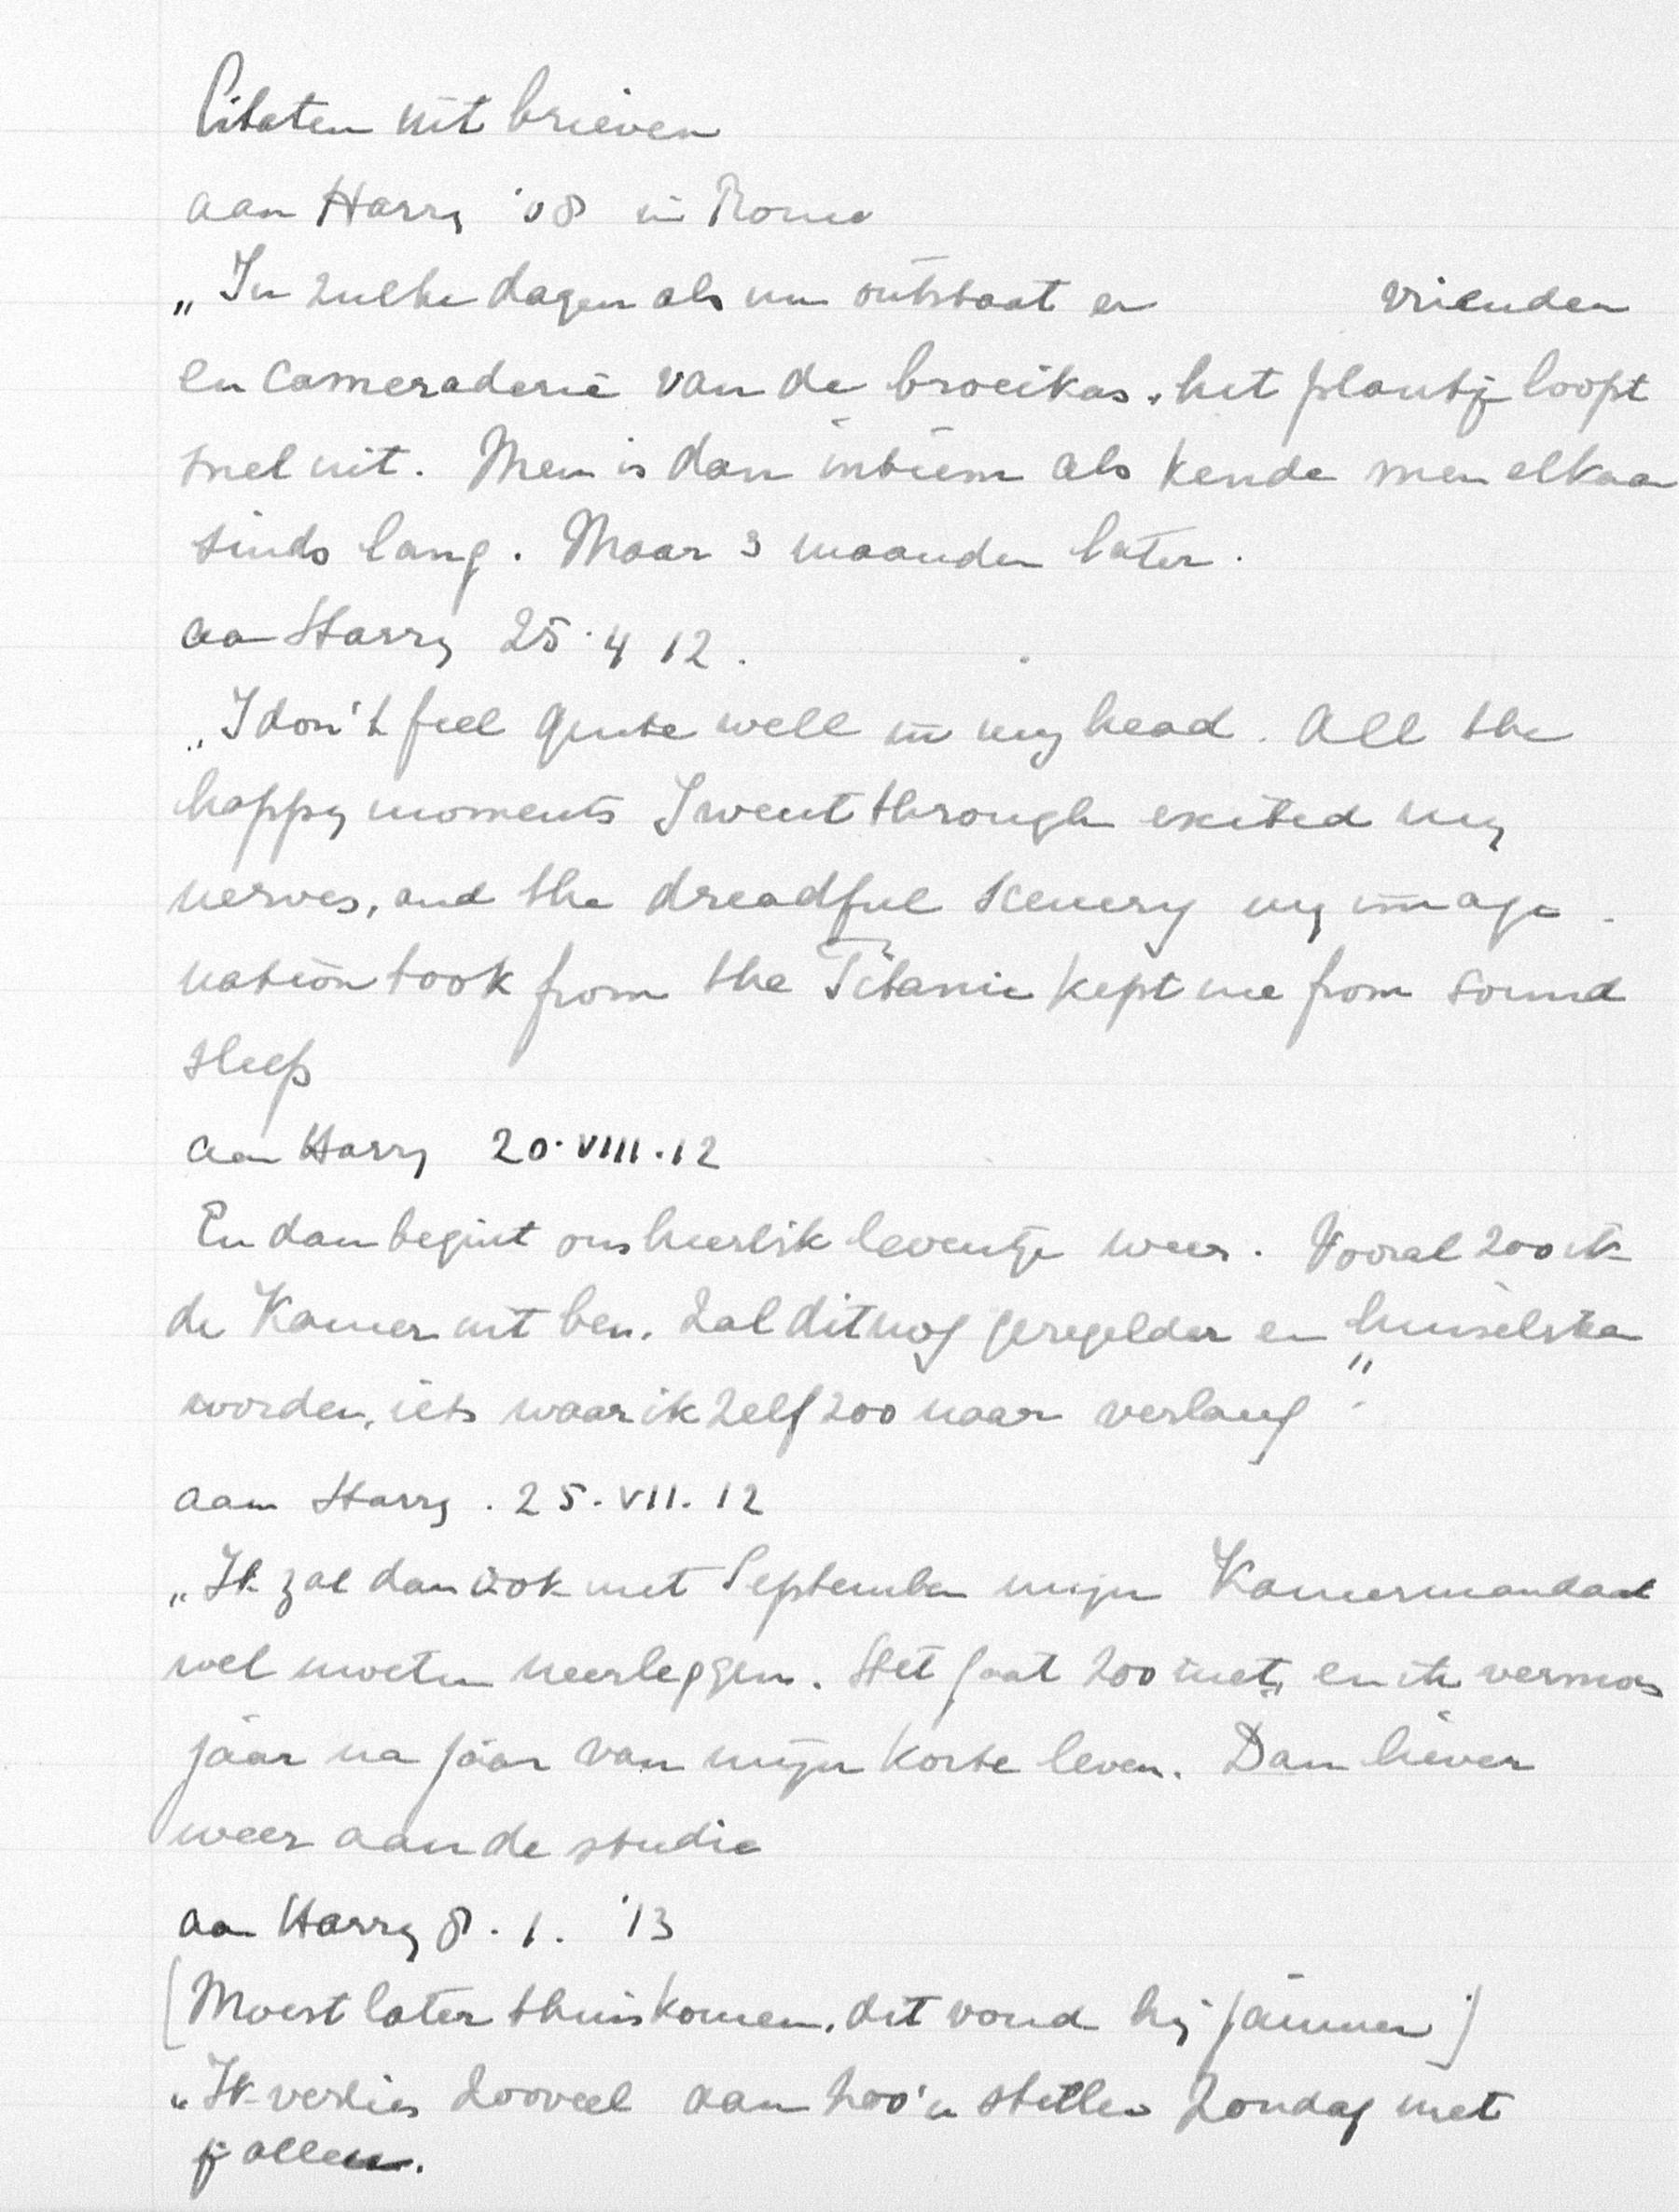 Citaten uit brieven
aan Harry '08 in Rome
„In zulke dagen als nu ontstaat er vrienden
en cameraderie van de broeikas. het plantje loopt
snel uit. Men is dan intiem als kende men elkaar
sinds lang. Maar 3 maanden later.
aan Harry 25.4 12.
„I don't feel quite well in my head. All the
happy moments I went through exited my
nerves, and the dreadful scenery my image-
nation took from the Titanic kept me from sound
sleep
aan Harry 20.VIII.12
En dan begint ons heerlik leventje weer. Vooral zoo ik
de Kamer uit ben. Zal dit nog geregelder en huiseliker
worden, iets waar ik zelf zoo naar verlang".
aan Harry. 25.VII.12
„Ik zal dan ook met September mijn Kamermandaat
wel moeten neerleggen. Het gaat zoo niet, en ik vermors
jaar na jaar van mijn korte leven. Dan liever
weer aan de studie
aan Harry 8.1. '13
[Moest later thuiskomen, dit vond hij jammer]
„Ik verlies zooveel aan zoo'n stillen Zondag met
je allen.